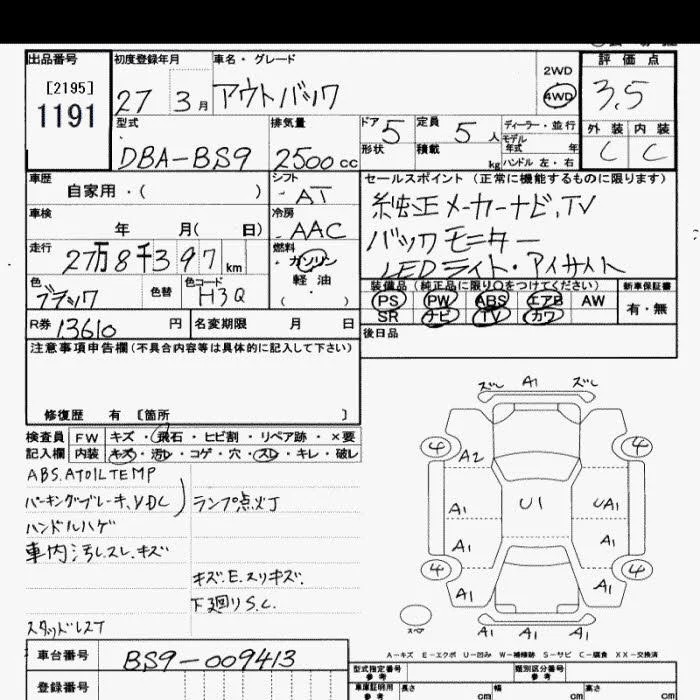 出品番号
[2195]
1191
初度登録年月
27 3月
車名・グレード
アウトバック
2WD
4WD
評価点
3.5
外装 内装
C C
型式
DBA-BS9
排気量
2500cc
ドア 5
形状
定員 5人
積載 kg
ディーラー・並行
モデル年式 年
ハンドル 左・右
車歴
自家用・( )
シフト
AT
セールスポイント (正常に機能するものに限ります)
純正メーカーナビ、TV
バックモニター
LEDライト・アイサイト
車検
年 月( 日)
冷房
AAC
走行
27万8千397km
燃料
・ガソリン
軽油
( ・ )
色
ブラック
色替
色コード
H3Q
装備品 (純正品に限り○をつけてください)
PS PW ABS エアB AW
SR ナビ TV カワ
新車保証書
有・無
R券 13610 円
名変期限 月 日
後日品
注意事項申告欄(不具合内容等は具体的に記入して下さい)
修復歴 有 [箇所 ]
検査員 FW キズ・飛石・ヒビ割・リペア跡・×要
記入欄 内装 キズ・汚レ・コゲ・穴・スレ・キレ・破レ
ABS.ATOILTEMP
パーキングブレーキ、VDC) ランプ点灯
ハンドルハゲ
車内汚レスレ、キズ
キズ.E.スリキズ.
下廻りS.C.
スタッドレスT
ズレ A1 ズレ
4 4
A2
A1 U1 UA1
A1 A1
4 4
A1 A1
A1 A1 A1
スペア
A-キズ E-エクボ U-凹み W-補修跡 S-サビ C-腐食 XX-交換済
車台番号
BS9-009413
登録番号
型式指定番号
参考
類別区分番号
参考
車庫証明用
参考
長さ cm 幅 cm 高さ cm